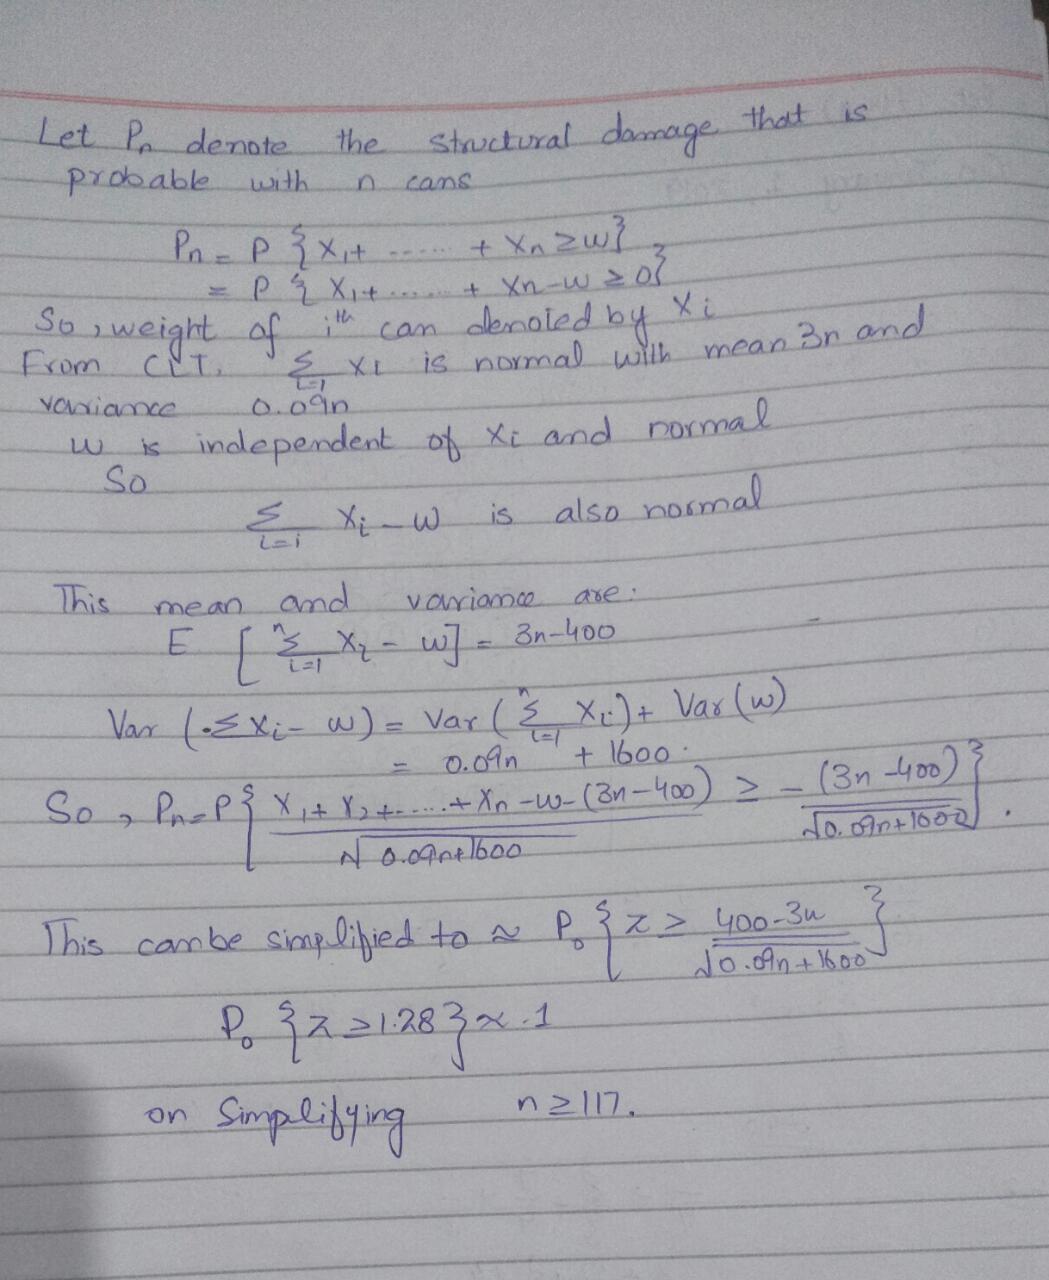 Let Pn denote the structural damage that is
probable with n cans
Pn = P { X1 + ...... + Xn ≥ w}
= P { X1 + ...... + Xn - w ≥ 0}
So, weight of ith can denoted by Xi
From CLT, Σ i=1 Xi is normal will mean 3n and
variance 0.09n
w is independent of Xi and normal
So
Σ i=i Xi - w is also normal
This mean and variance are:
E [ n Σ i=1 Xi - w] = 3n-400
Var (.ΣXi - w) = Var ( n Σ i=1 Xi) + Var (w)
= 0.09n + 1600.
So, Pn = P { X1 + X2 + ...... + Xn - w - (3n-400) / √0.09n+1600 ≥ - (3n-400) / √0.09n+1600 } .
This can be simplified to ≈ Po { z ≥ 400-3n / √0.09n+1600 }
Po { z ≥ 1.28 } ≈ .1
on Simplifying n ≥ 117.